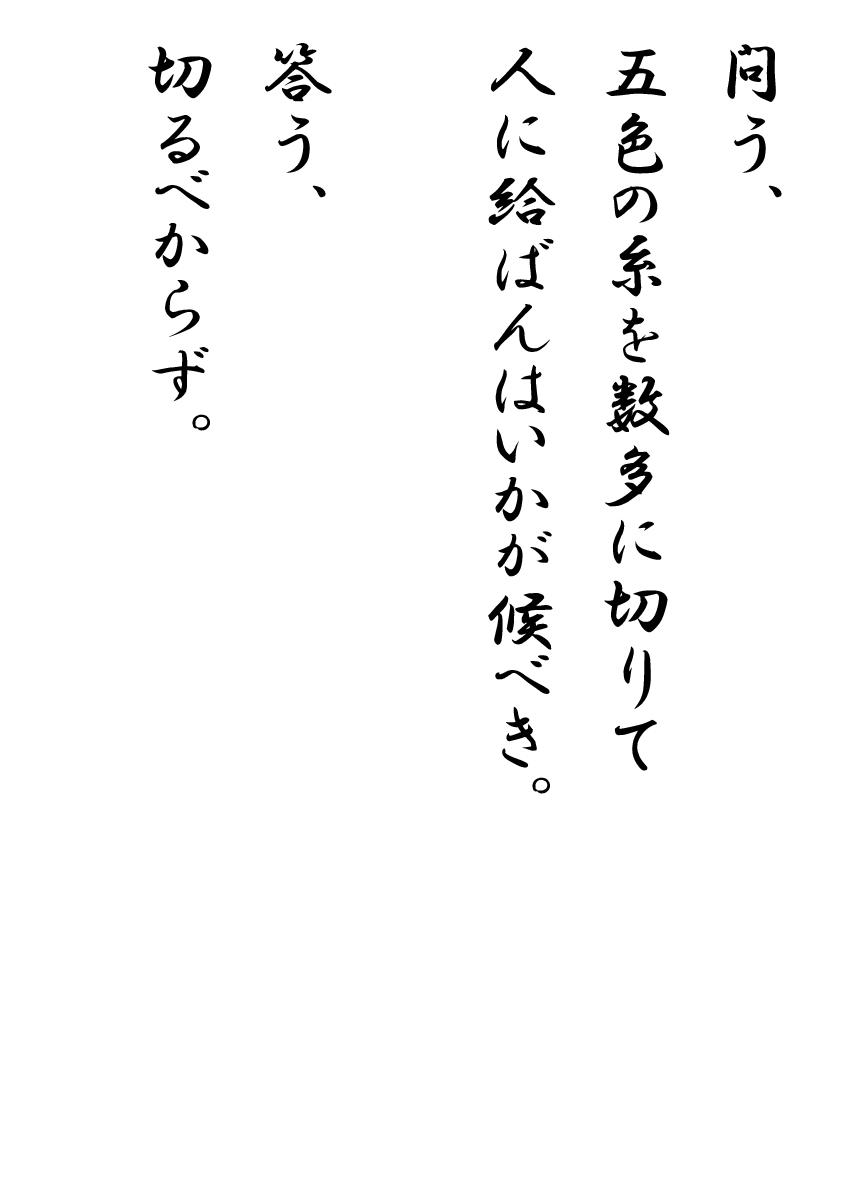 問う、
五色の糸を数多に切りて
人に給ばんはいかが候べき。
答う、
切るべからず。